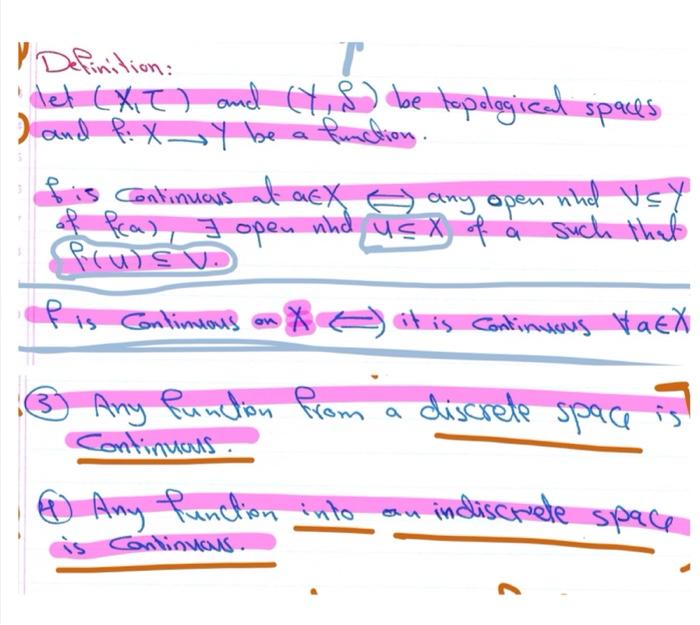 Definition:
let (X,τ) and (Y,S) be topological spaces
and f: X → Y be a function.
f is continuous at a∈X ⟺ any open nhd V⊆Y
of f(a), ∃ open nhd U⊆X of a such that
f(U) ⊆ V.
f is continuous on X ⟺ it is continuous ∀a∈X
③ Any function from a discrete space is
continuous.
④ Any function into an indiscrete space
is continuous.